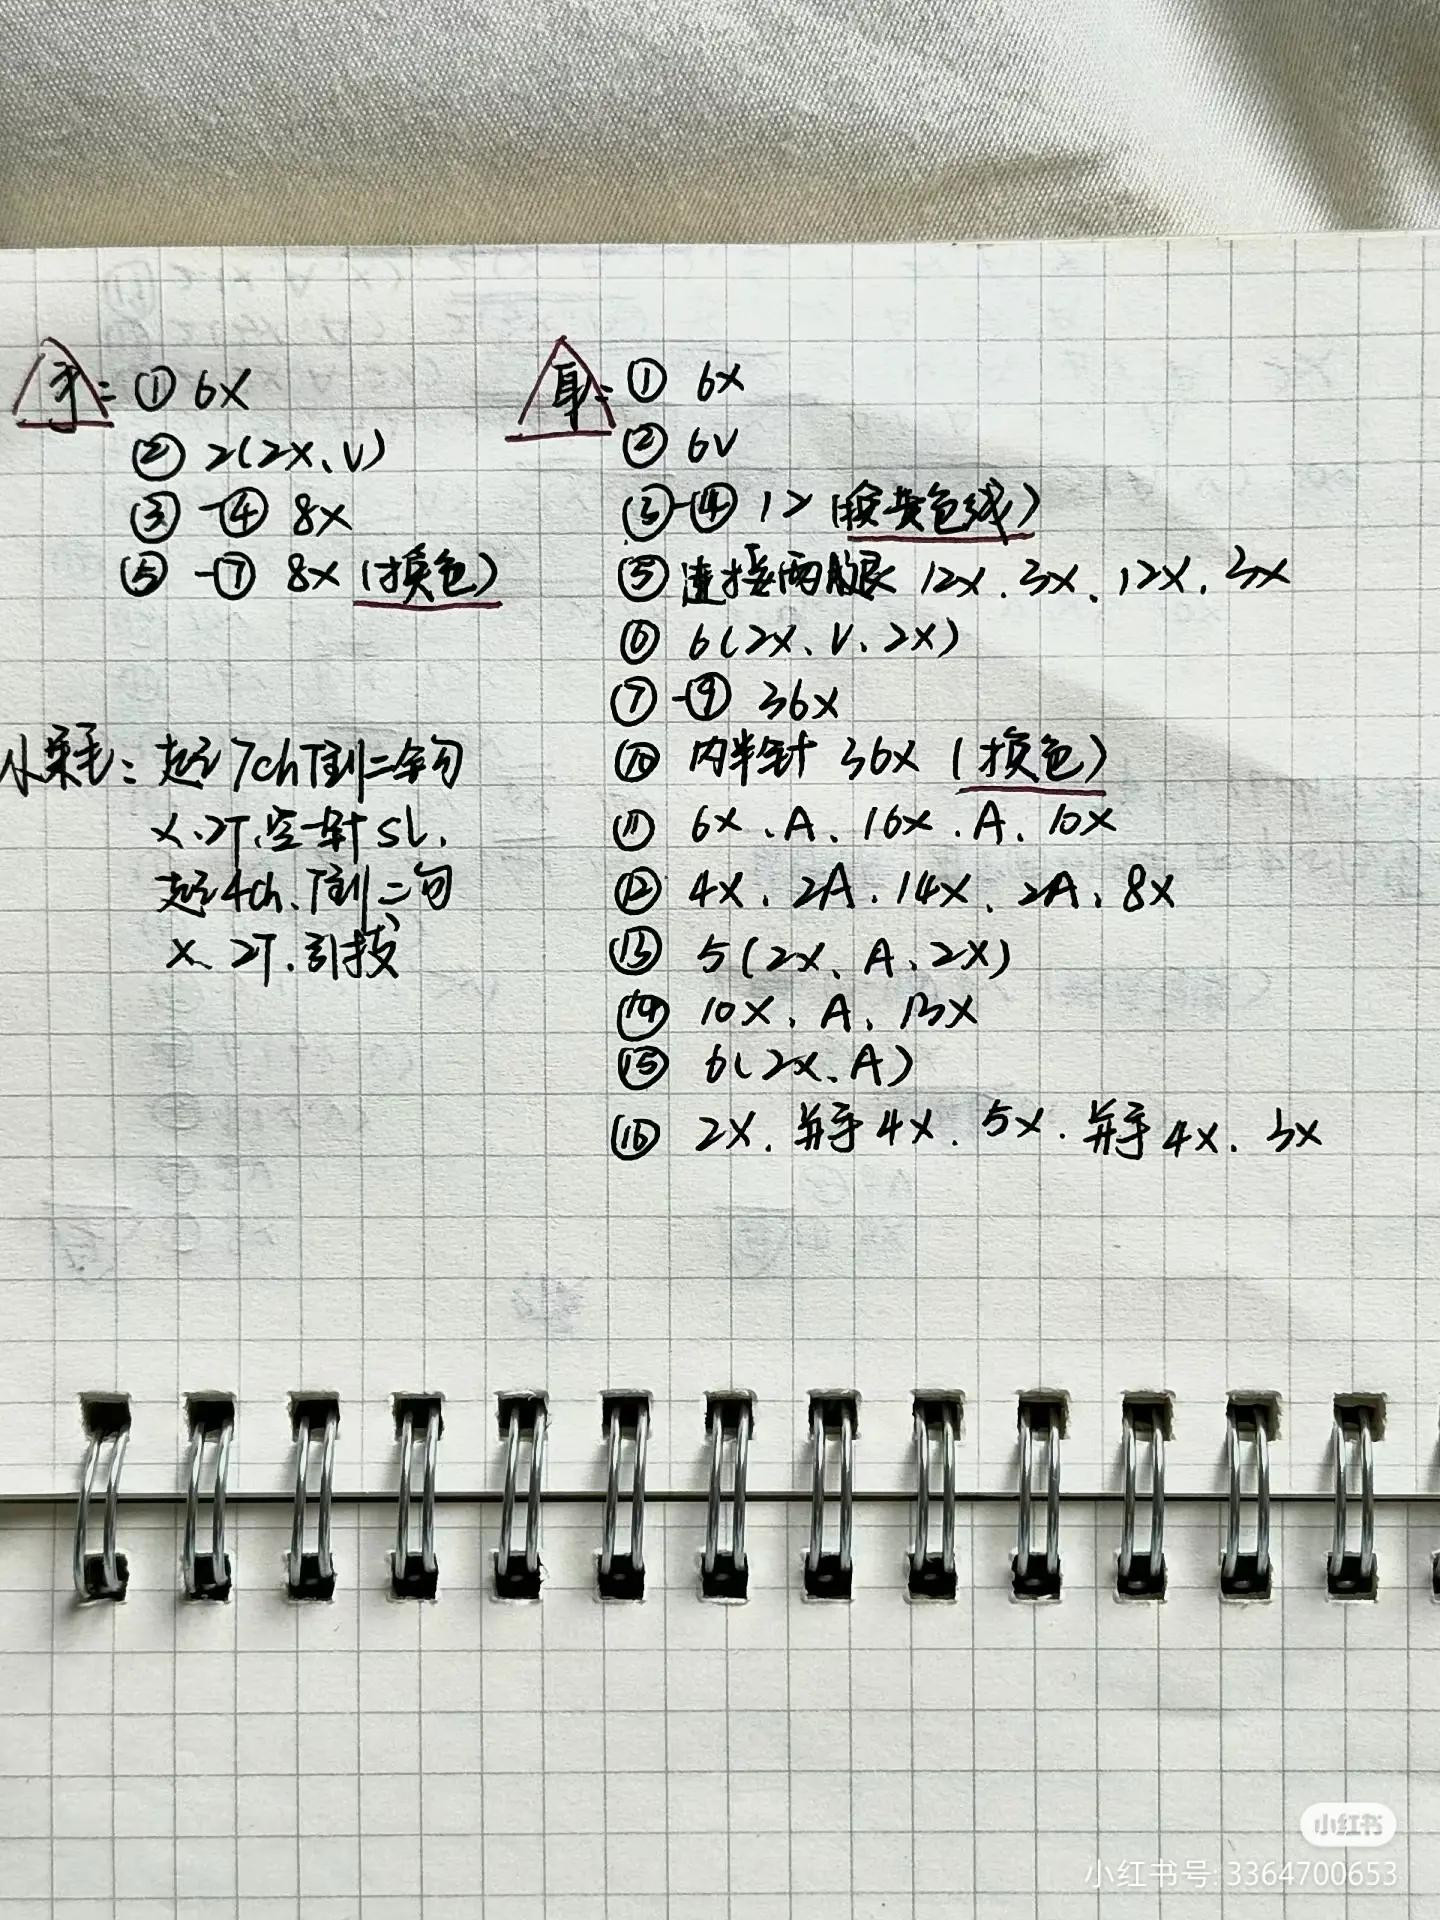 手: ① 6X
② 2(2X、V)
③-④ 8X
⑤-⑦ 8X (换色)
小呆毛: 起7ch倒二钩
X、2T、空一针SL、
起4ch、倒二勾
X、2T、引拔
耳: ① 6X
② 6V
③-④ 12 (换黄色线)
⑤ 连接两腿 12X、3X、12X、3X
⑥ 6(2X、V、2X)
⑦-⑨ 36X
⑩ 内半针 36X (换色)
⑪ 6X、A、16X、A、10X
⑫ 4X、2A、14X、2A、8X
⑬ 5(2X、A、2X)
⑭ 10X、A、13X
⑮ 6(2X、A)
⑯ 2X、并手4X、5X、并手4X、3X
小红书
小红书号: 3364700653